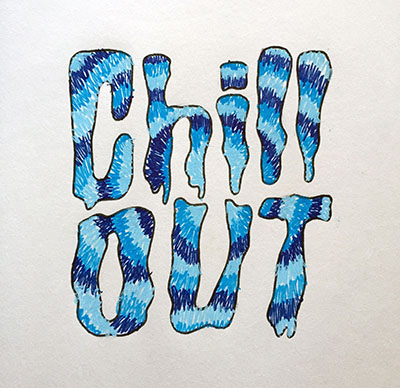 Chill
OUT